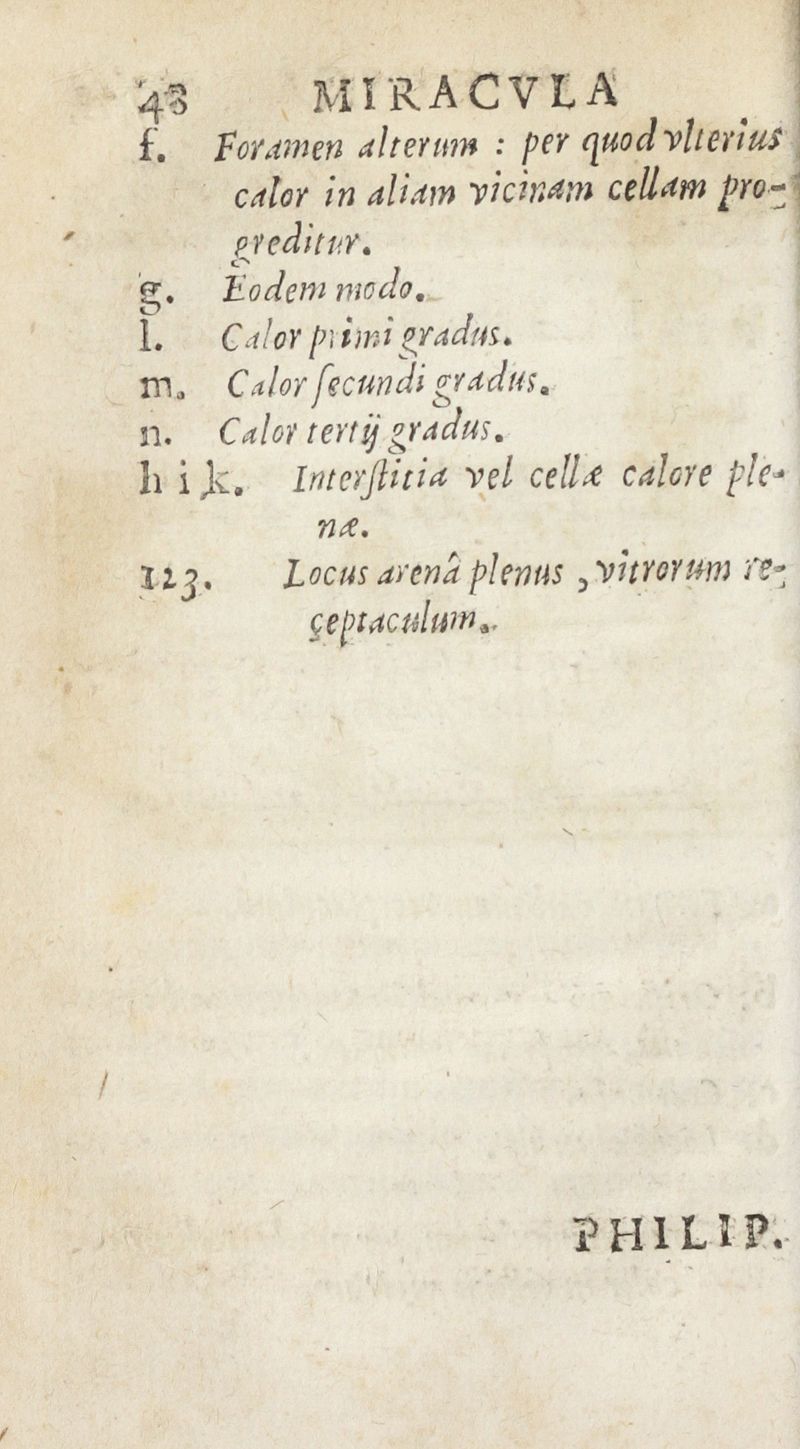 48 MIRACVLA
f. Foramen alterum : per quod vlterius
calor in aliam vicinam cellam pro-
greditur.
g. Eodem modo.
l. Calor primi gradus.
m. Calor ſecundi gradus.
n. Calor tertij gradus.
h i k. Interſtitia vel cellæ calore ple-
næ.
123. Locus arenâ plenus , vitrorum re-
ceptaculum.
PHILIP.